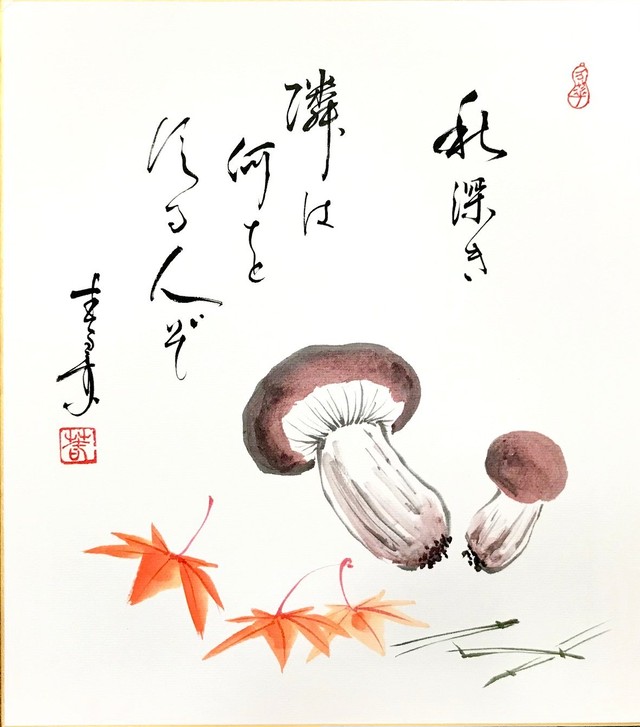 秋深き
隣は
何を
する人ぞ